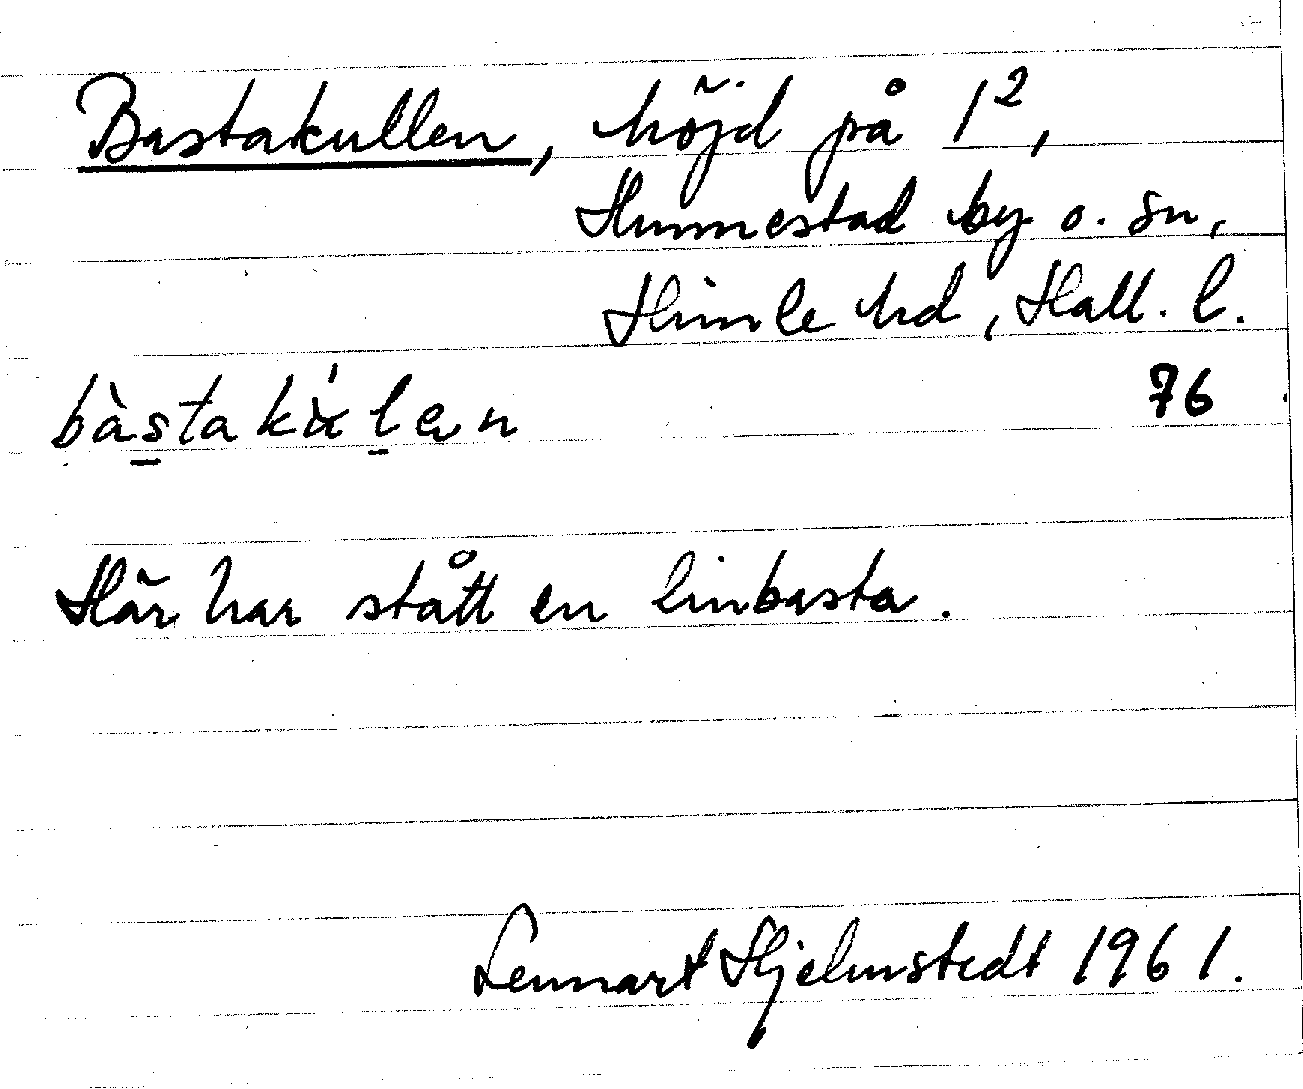 Bastakullen, höjd på 1²,
Hunnestad by o. sn,
Himle hd, Hall. l.
bàstakú̵len 76
Här har stått en linbasta.
Lennart Hjelmstedt 1961.